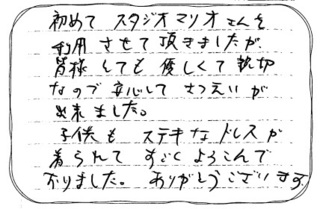 初めて スタジオマリオさんを
利用 させて 頂きましたが
皆様 とても 優しくて 親切
なので 安心して さつえいが
出来ました。
子供も ステキな ドレスが
着られて すごく よろこんで
おりました。 ありがとうございます